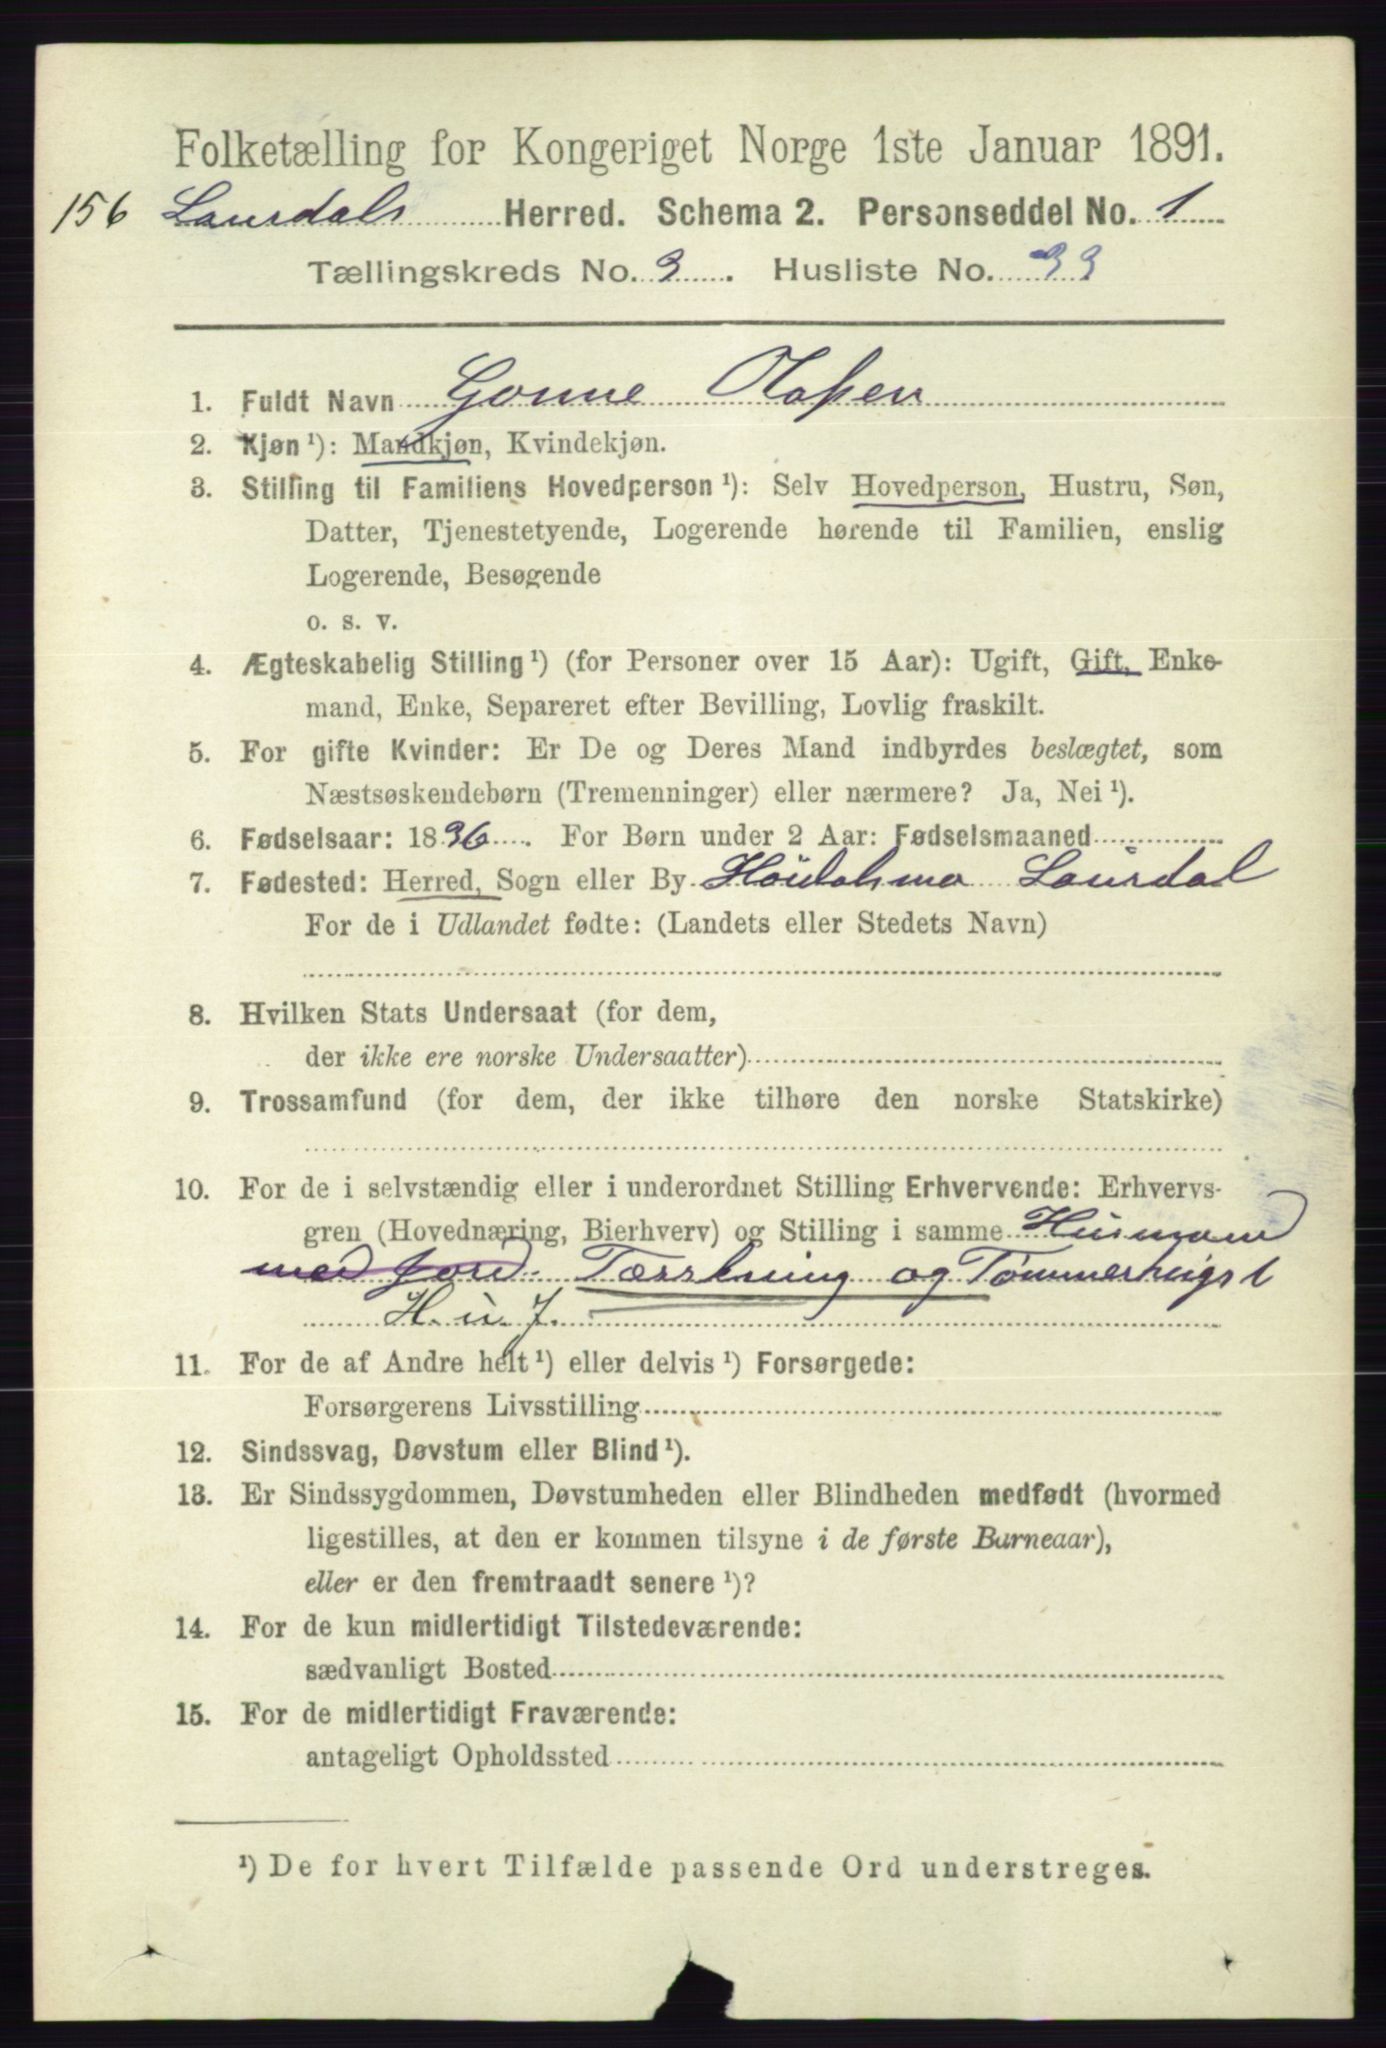 Folketælling for Kongeriget Norge 1ste Januar 1891.
156 Laurdals Herred. Schema 2. Personseddel No. 1
Tællingskreds No. 3. Husliste No. 33
1. Fuldt Navn Gonne Olaßen
2. Kjøn ¹): Mandkjøn, Kvindekjøn.
3. Stilling til Familiens Hovedperson ¹): Selv Hovedperson, Hustru, Søn,
Datter, Tjenestetyende, Logerende hørende til Familien, enslig
Logerende, Besøgende
o. s. v.
4. Ægteskabelig Stilling ¹) (for Personer over 15 Aar): Ugift, Gift, Enke-
mand, Enke, Separeret efter Bevilling, Lovlig fraskilt.
5. For gifte Kvinder: Er De og Deres Mand indbyrdes beslægtet, som
Næstsøskendebørn (Tremenninger) eller nærmere? Ja, Nei ¹).
6. Fødselsaar: 1836. For Børn under 2 Aar: Fødselsmaaned
7. Fødested: Herred, Sogn eller By Høidalsmo Laurdal
For de i Udlandet fødte: (Landets eller Stedets Navn)
8. Hvilken Stats Undersaat (for dem,
der ikke ere norske Undersaatter)
9. Trossamfund (for dem, der ikke tilhøre den norske Statskirke)
10. For de i selvstændig eller i underordnet Stilling Erhvervende: Erhvervs-
gren (Hovednæring, Bierhverv) og Stilling i samme Husmand
med Jord. Tærskning og Tømmerhugst
H. u. J.
11. For de af Andre helt ¹) eller delvis ¹) Forsørgede:
Forsørgerens Livsstilling
12. Sindssvag, Døvstum eller Blind ¹).
13. Er Sindssygdommen, Døvstumheden eller Blindheden medfødt (hvormed
ligestilles, at den er kommen tilsyne i de første Barneaar),
eller er den fremtraadt senere ¹)?
14. For de kun midlertidigt Tilstedeværende:
sædvanligt Bosted
15. For de midlertidigt Fraværende:
antageligt Opholdssted
¹) De for hvert Tilfælde passende Ord understreges.